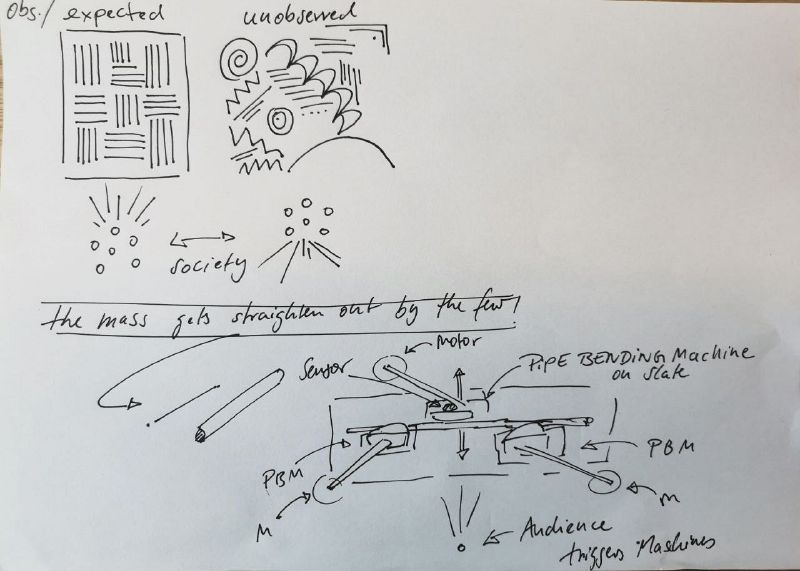 obs./ expected
unobserved
society
the mass gets straighten out by the few!
motor
Sensor
PiPE BENDING Machine
on slate
PBM
PBM
M
M
Audience
triggers Mashines